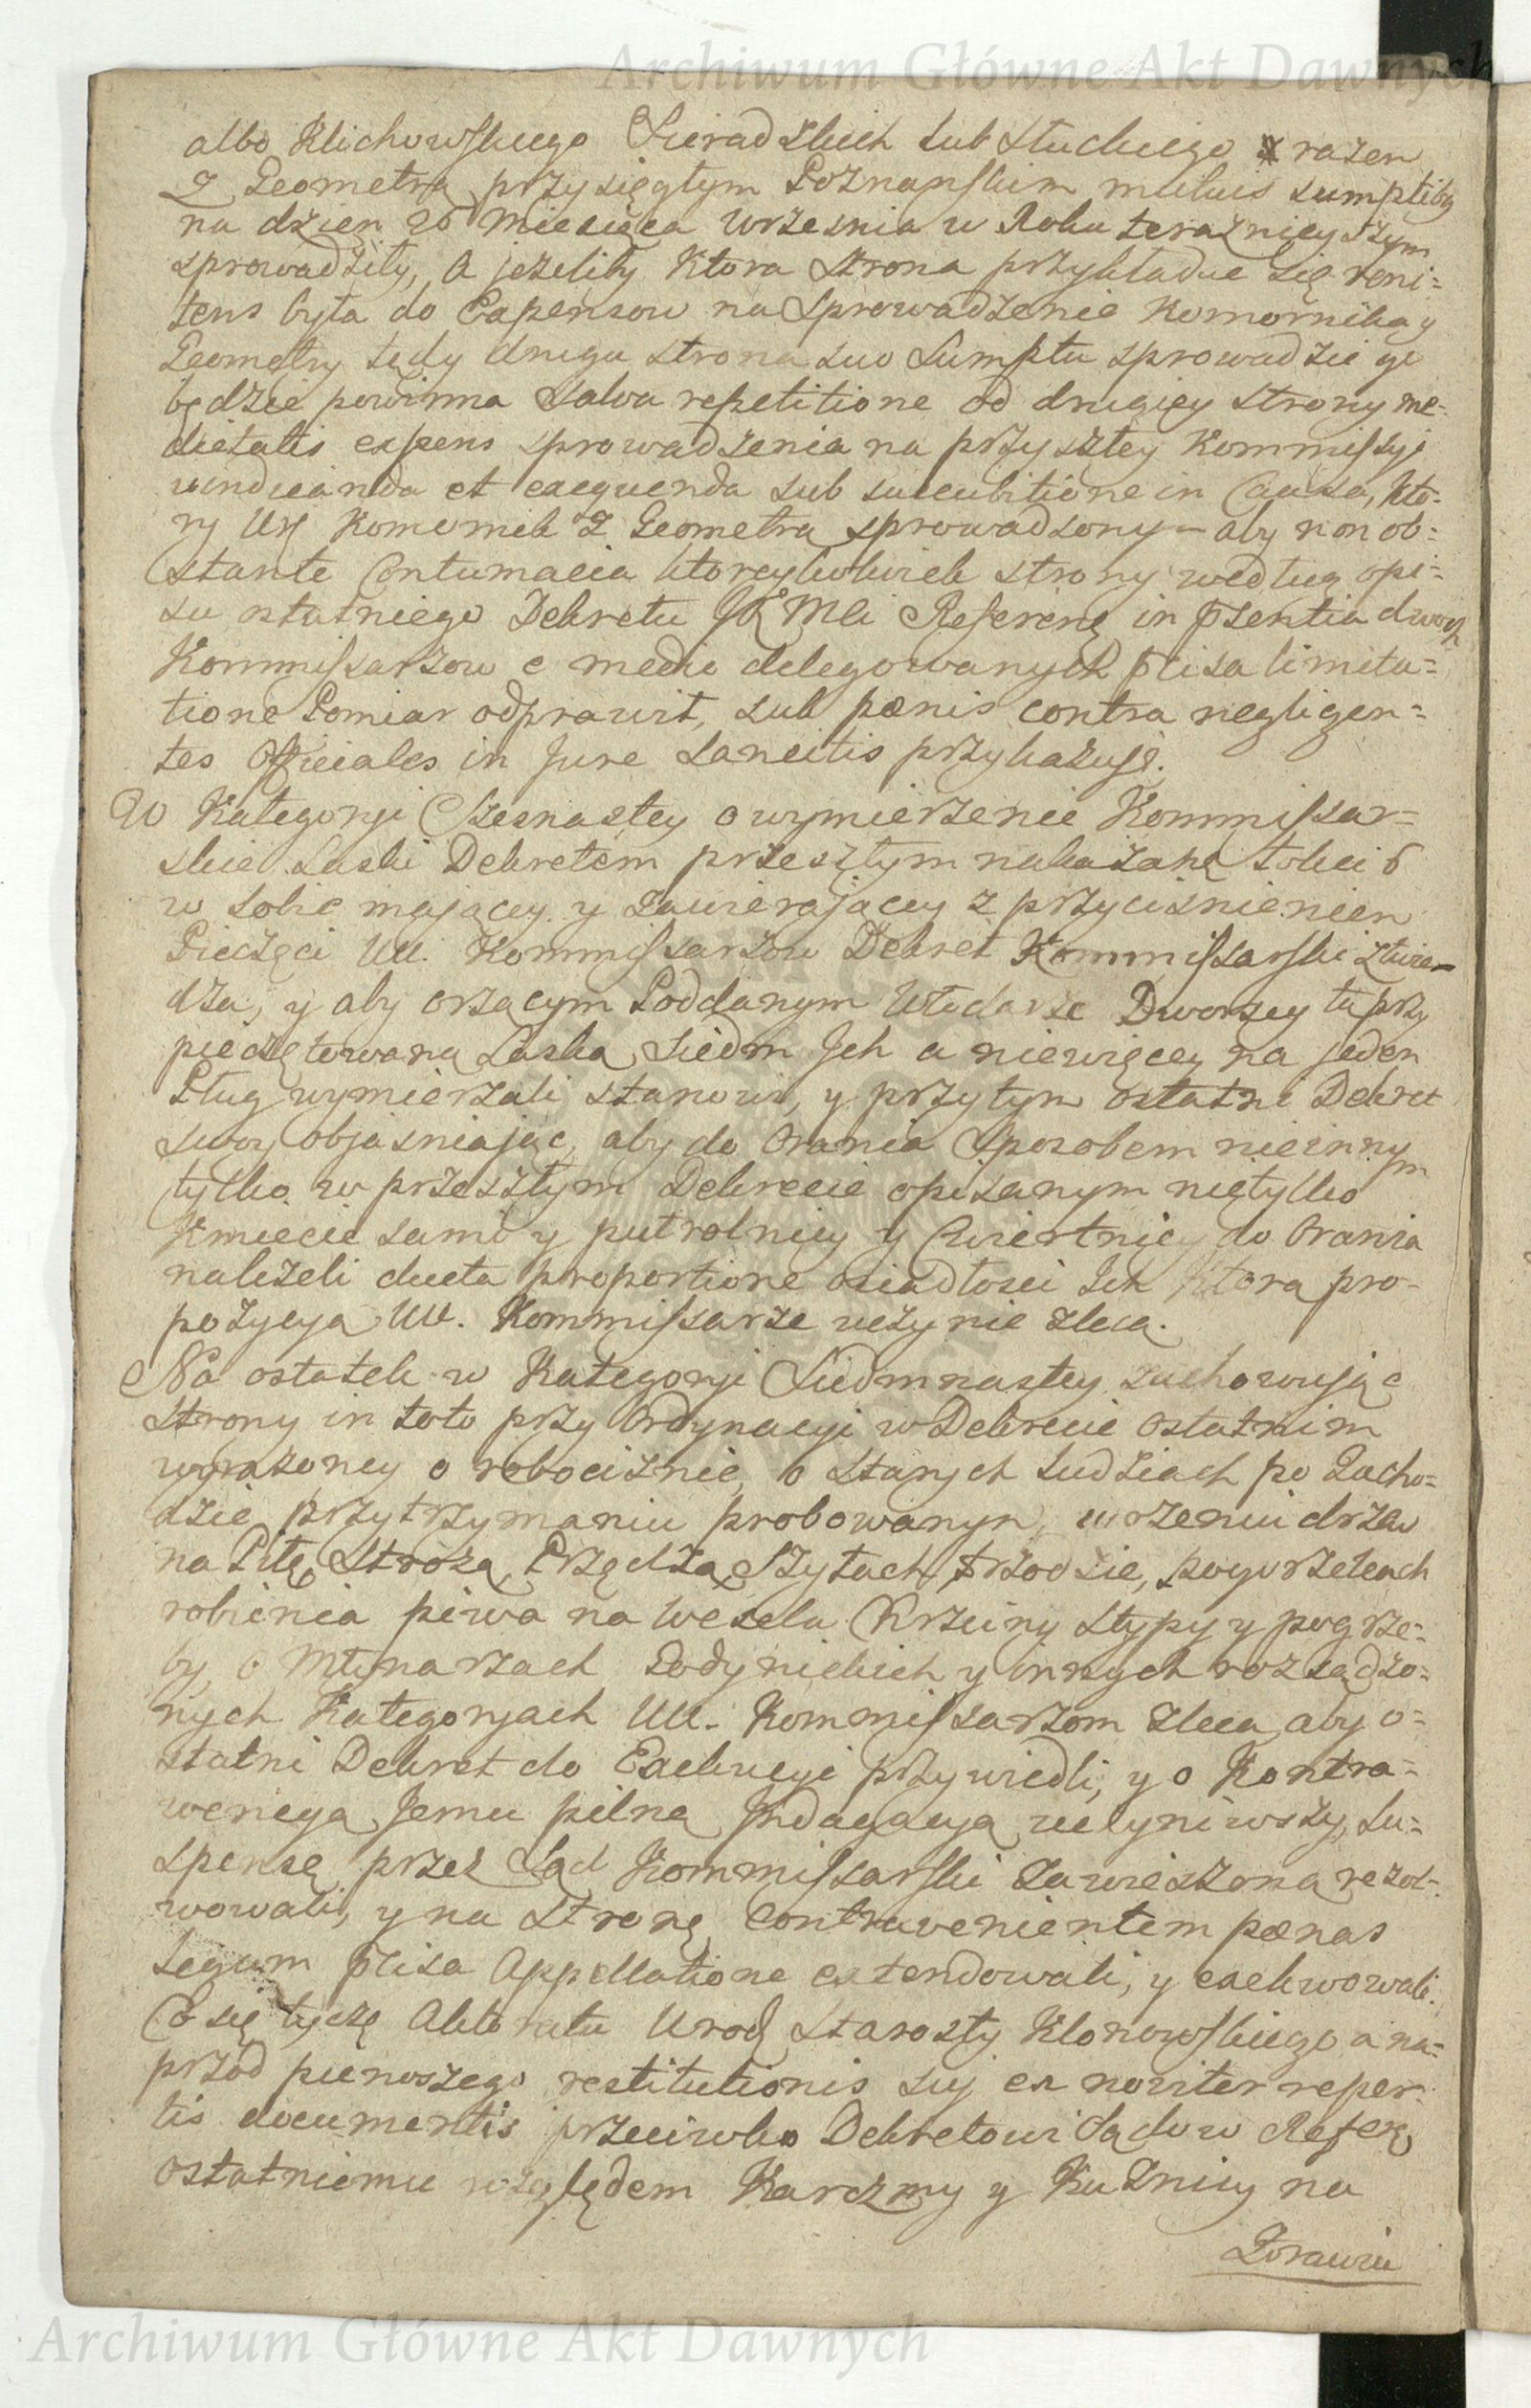 Archiwum Główne Akt Dawnych
albo Klichowskiego Sieradzkich lub Słuckiego razem
z Geometrą przysięgłym Poznanskim mutuis sumptibus
na dzien 26 Miesiąca Wrzesnia w Roku teraznieyszym
sprowadziły, A jeżeliby Ktora Strona przykładac się reni=
tens była do Expensow na Sprowadzenie Komornika y
Geometry tedy druga strona suo Sumptu sprowadzic go
będzie powinna Salva repetitione od drugiey strony me=
dietatis expens sprowadzenia na przyszłey Kommissyi
vindicanda et exequenda sub succubitione in Causa, Kto=
ry Ur Komornik z Geometrą sprowadzony – aby non ob=
stante Contumacia ktoreykolwiek strony według opi=
su ostatniego Dekretu JK Mci Referen in psentia dwoch
Kommissarzow e medio delegowanych pcisa limita=
tione Pomiar odprawił, sub pœnis contra negligen=
tes Officiales in Jure Sancitis przykazuje.
W Kategoryi Szesnastey o wymierzenie Kommissar=
skiey Laski Dekretem przeszłym nakazaną łokci 6
w sobie maiącey y zawieraiącey z przycisnieniem
Pieczęci UU. Kommissarzow Dekret Kommissarski ztwier=
dza, y aby orzącym Poddanym Włodarze Dworscy tą przy
pieczętowaną Laską Siedm Jch a niewięcey na jeden
Pług wymierzali stanowi, y przytym ostatni Dekret
swoy objasniając, aby do Orania Sposobem nieinnym
tylko w przeszłym Dekrecie opisanym nietylko
Kmiecie sami y putrolnicy y Cwiertnicy do Orania
należeli ducta proportione osiadłosci Jch ktora pro-
pozycya UU. Kommissarze uczynic zleca.
Na ostatek w Kategoryi Siedmnastey zachowując
Strony in toto przy Ordynacyi w Dekrecie Ostatnim
wyrażoney o robociznie, o Starych Ludziach po Zacho=
dzie przytrzymaniu probowanym, wożeniu drzew
na Piłę, Strożą, Przędzą, Szytach, Trzodzie, pogorzelcach
robienia piwa na Wesela Krzciny Stypy y pogrze=
by, o Młynarzach Lodynickich y innych rozsądzo=
nych Kategoryach UU. Kommissarzom zleca, aby o=
statni Dekret do Exekucyi przywiedli, y o Kontra=
wencyą Jemu pilną Jndagacyą uczyniwszy, Su=
spensę przez Sąd Kommissarski zawieszoną rezol=
wowali, y na Stronę Contravenientem pœnas
Legum pcisa Appellatione extendowali, y exekwowali.
Co się tycze Aktoratu Urod Starosty Klonowskiego a na=
przod pierwszego restitutionis sui ex noviter reper=
tis documentis przeciwko Dekretowi Sądow Refer
ostatniemu względem Karczmy y Kuznicy na
Żorawiu
Archiwum Główne Akt Dawnych